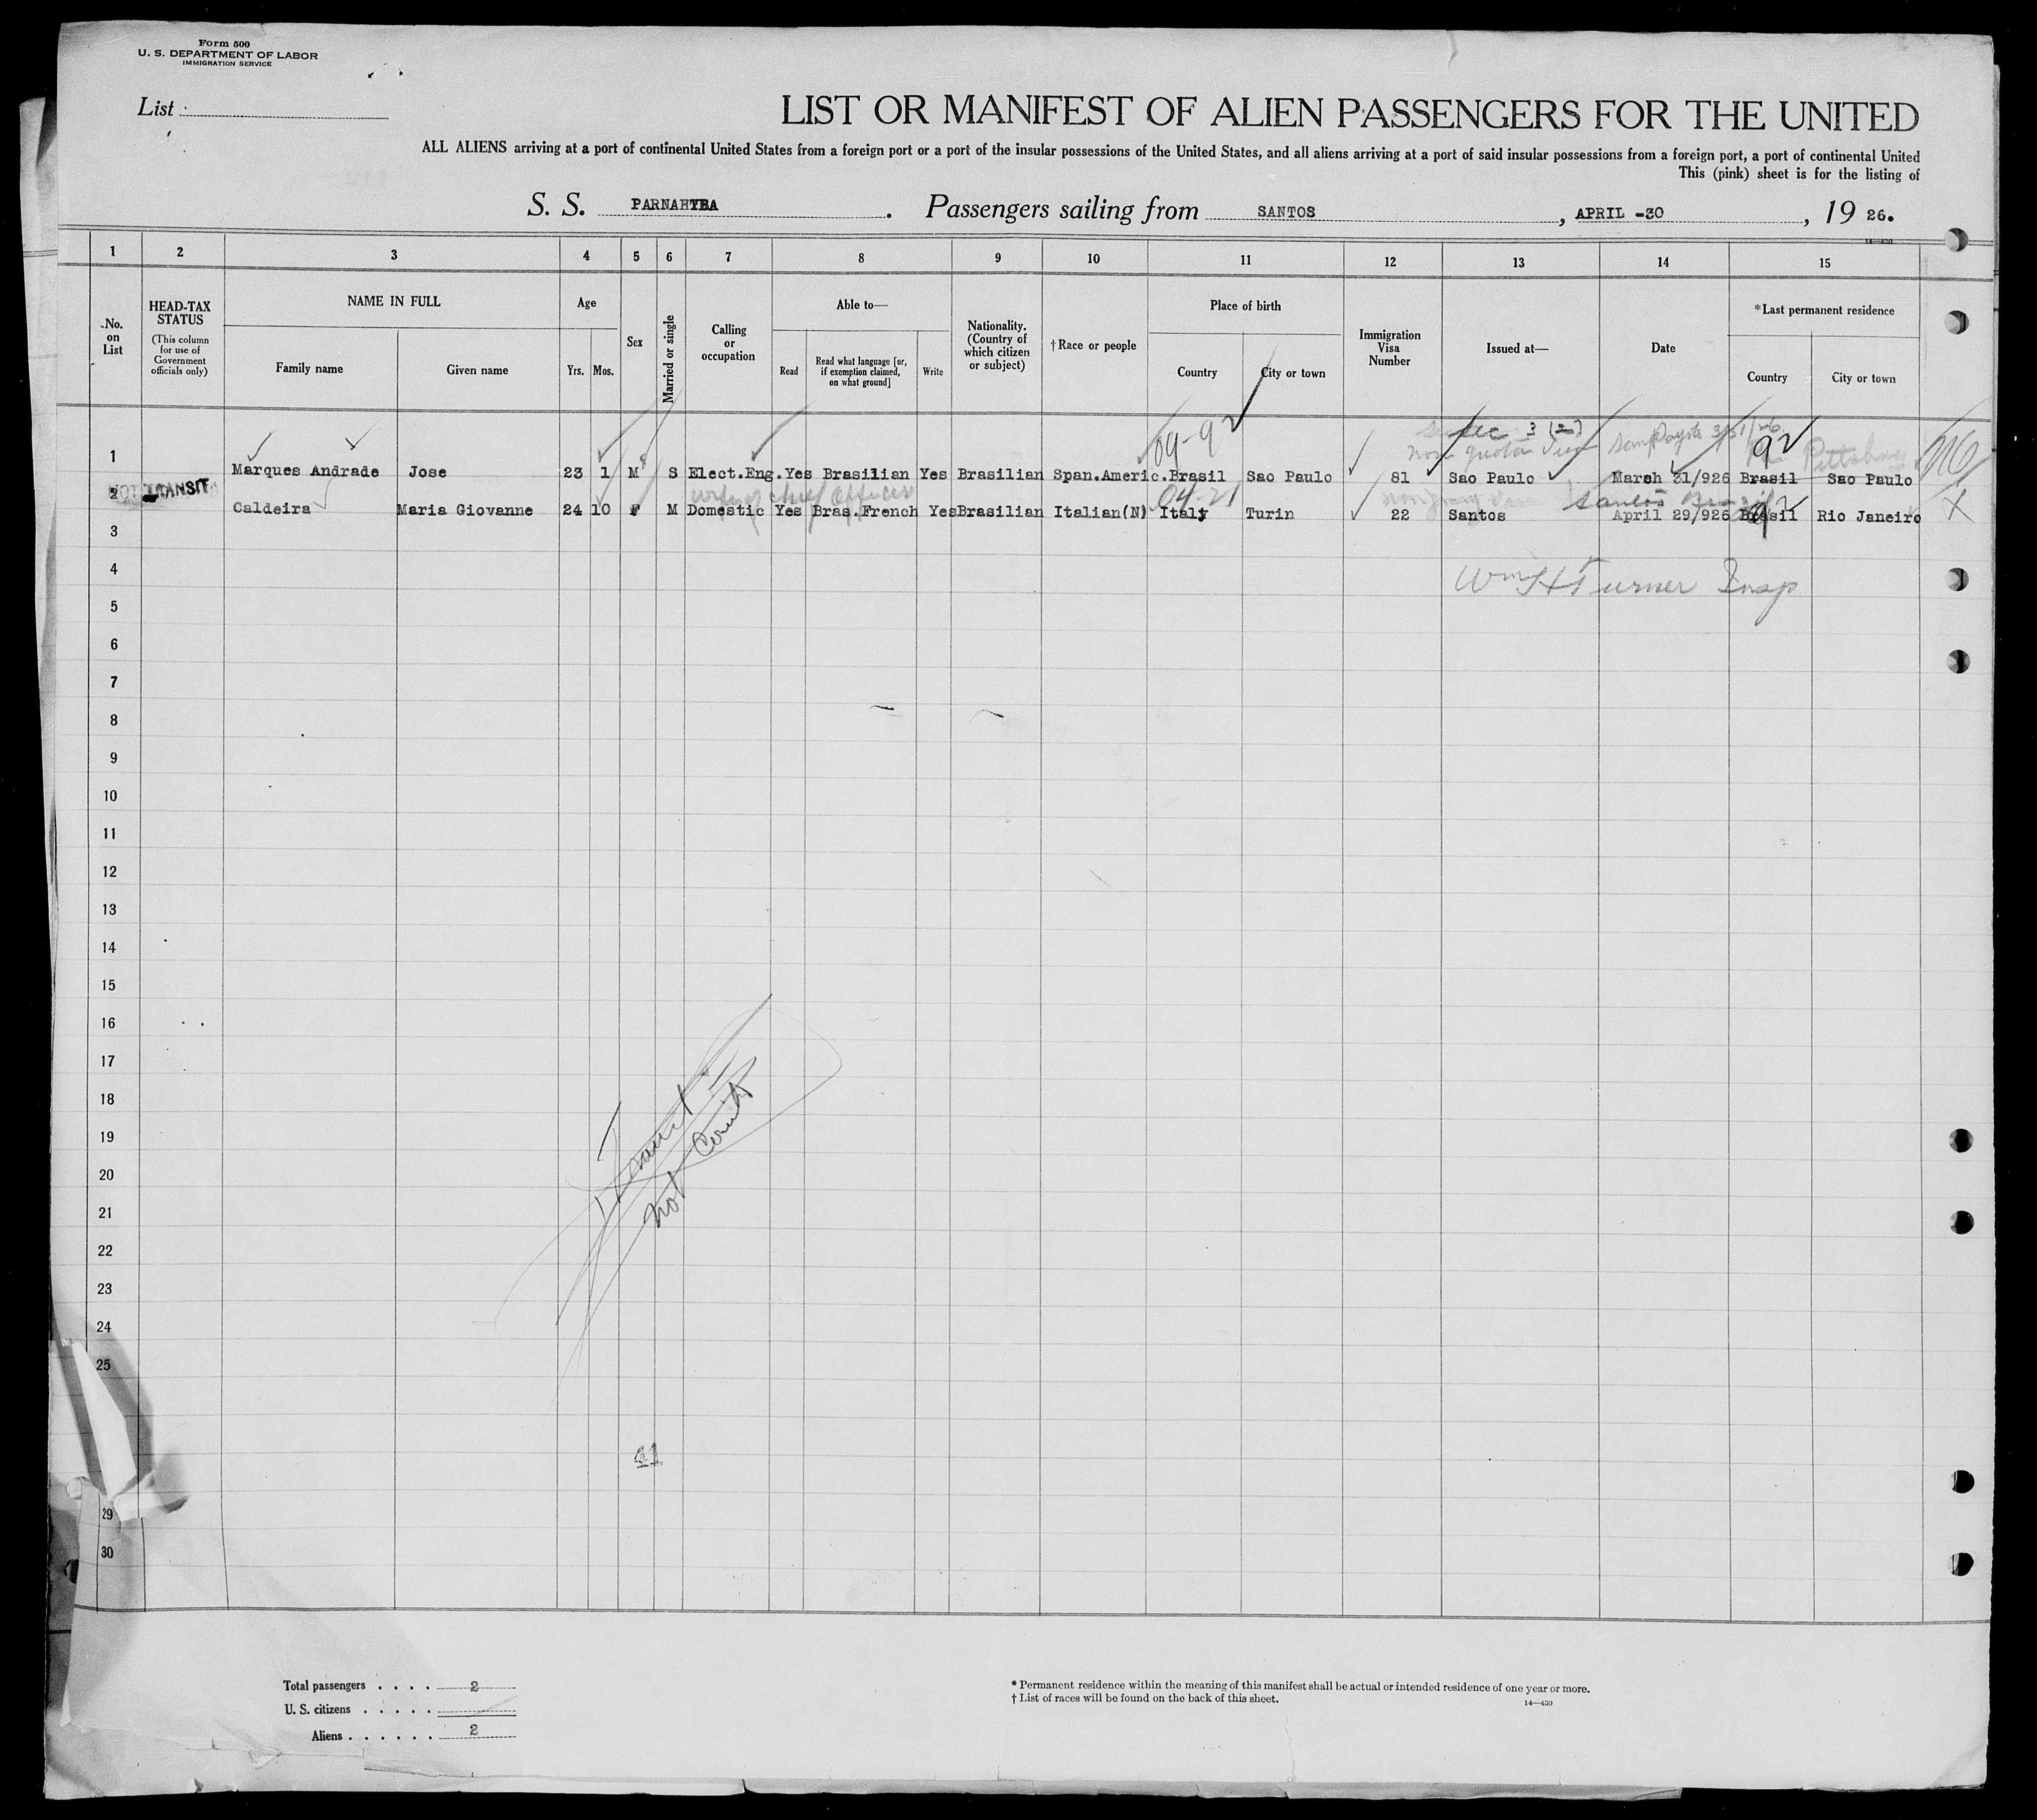 Form 500
U. S. DEPARTMENT OF LABOR
IMMIGRATION SERVICE
List
LIST OR MANIFEST OF ALIEN PASSENGERS FOR THE UNITED
ALL ALIENS arriving at a port of continental United States from a foreign port or a port of the insular possessions of the United States, and all aliens arriving at a port of said insular possessions from a foreign port, a port of continental United
This (pink) sheet is for the listing of
S. S. PARNAHYBA. Passengers sailing from SANTOS, APRIL -30, 19 26.
14—430
1 2 3 4 5 6 7 8 9 10 11 12 13 14 15
No. on List
HEAD-TAX STATUS
(This column for use of Government officials only)
NAME IN FULL
Family name
Given name
Age
Yrs. Mos.
Sex
Married or single
Calling or occupation
Able to—
Read
Read what language [or, if exemption claimed, on what ground]
Write
Nationality. (Country of which citizen or subject)
†Race or people
Place of birth
Country
City or town
Immigration Visa Number
Issued at—
Date
*Last permanent residence
Country
City or town
09-92
3 (2)
non quota
3/31/26
92
Pittsburg
1 Marques Andrade Jose 23 1 M S Elect.Eng. Yes Brasilian Yes Brasilian Span.Americ. Brasil Sao Paulo 81 Sao Paulo March 31/926 Brasil Sao Paulo
TRANSIT
wife of chief officer
04-21
Santos
2 Caldeira Maria Giovanne 24 10 F M Domestic Yes Bras.French Yes Brasilian Italian(N) Italy Turin 22 Santos April 29/926 Brasil Rio Janeiro X
3
4
Wm H Turner Insp
5
6
7
8
9
10
11
12
13
14
15
16
17
18
19
20
21
22
23
24
25
29
30
Transit
not Count
41
Total passengers . . . . 2
U. S. citizens . . . . .
Aliens . . . . . . 2
* Permanent residence within the meaning of this manifest shall be actual or intended residence of one year or more.
† List of races will be found on the back of this sheet.
14—430